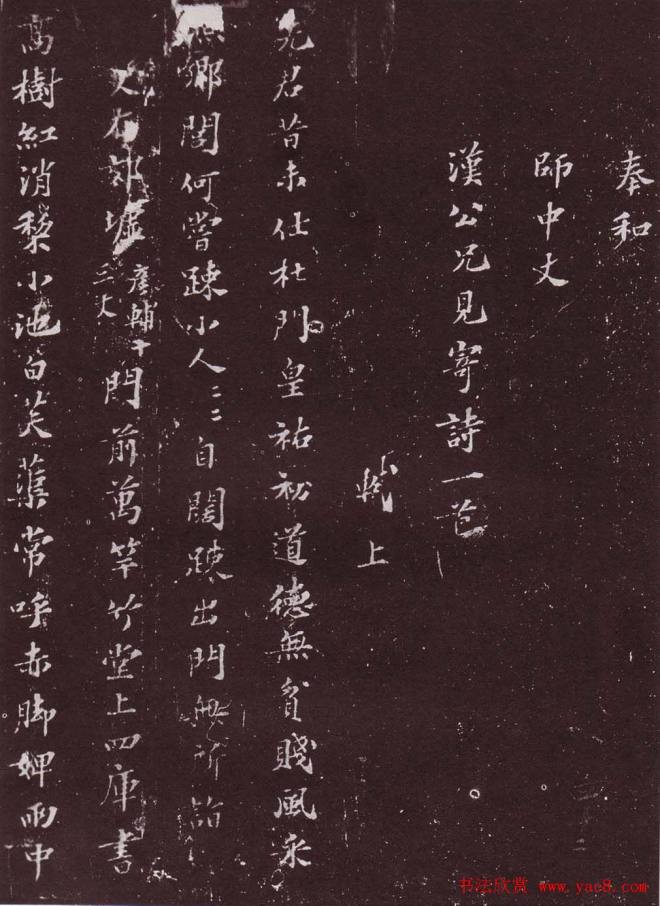 奉和
師中丈
漢公兄見寄詩一首
軾上
先君昔未仕杜門皇祐初道德無貧賤風采
鄉閭何嘗踈小人二二自闊踈出門無所詣
史在郊墟彥輔十三丈門前萬竿竹堂上四庫書
高樹紅消梨小池白芙蕖常呼赤脚婢雨中
书法欣赏 www.yac8.com